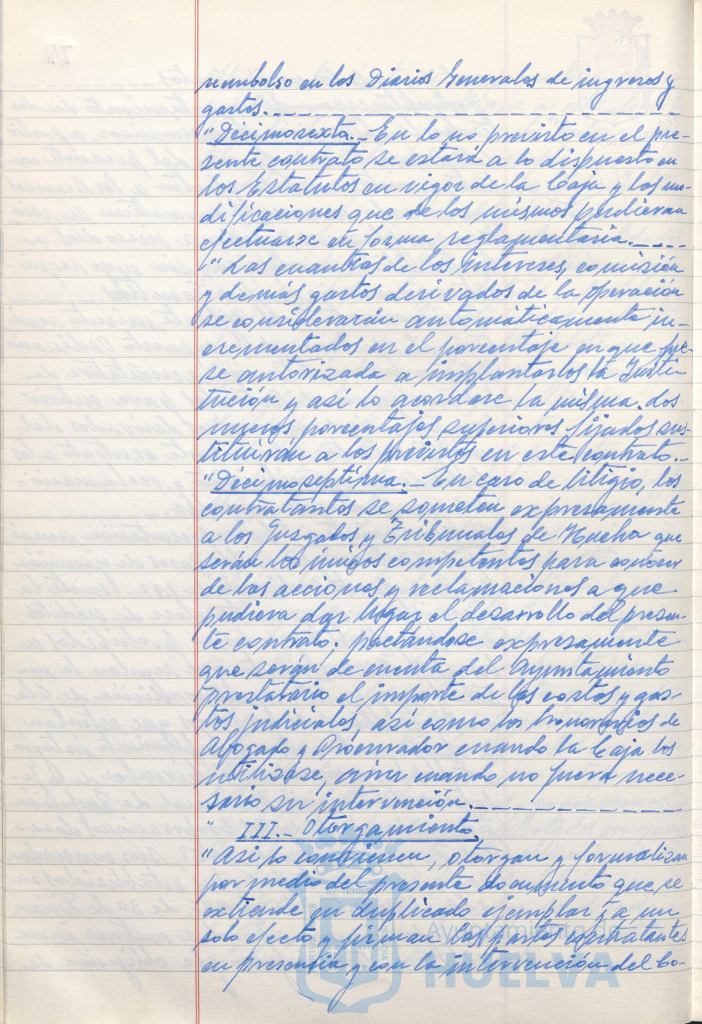 rembolso en los Diarios Generales de ingresos y
gastos.
"Décimosexta.- En lo no previsto en el pre-
sente contrato se estará a lo dispuesto en
los Estatutos en vigor de la Caja y los mo-
dificaciones que de los mismos pudieran
efectuarse en forma reglamentaria.
"Las cuantías de los intereses, comisión
y demás gastos derivados de la operación
se considerarán automáticamente in-
crementados en el porcentaje en que fue-
se autorizada a implantarlos la Insti-
tución y así lo acordase la misma. Los
nuevos porcentajes superiores fijados sus-
tituirán a los previstos en este contrato.-
"Décimoséptima.- En caso de litigio, los
contratantes se someten expresamente
a los Juzgados y Tribunales de Huelva que
serán los únicos competentes para conocer
de las acciones y reclamaciones a que
pudiera dar lugar el desarrollo del presen-
te contrato; pactándose expresamente
que serán de cuenta del Ayuntamiento
prestatario el importe de las costas y gas-
tos judiciales, así como los honorarios de
Abogado y Procurador cuando la Caja los
utilizase, aún cuando no fuera nece-
sario su intervención.
" III.- Otorgamiento.
"Así lo convienen, otorgan y formalizan
por medio del presente documento que, se
extiende en duplicado ejemplar, a un
solo efecto y firman las partes contratantes
en presencia y con la intervención del Co-
Ayuntamiento de
HUELVA